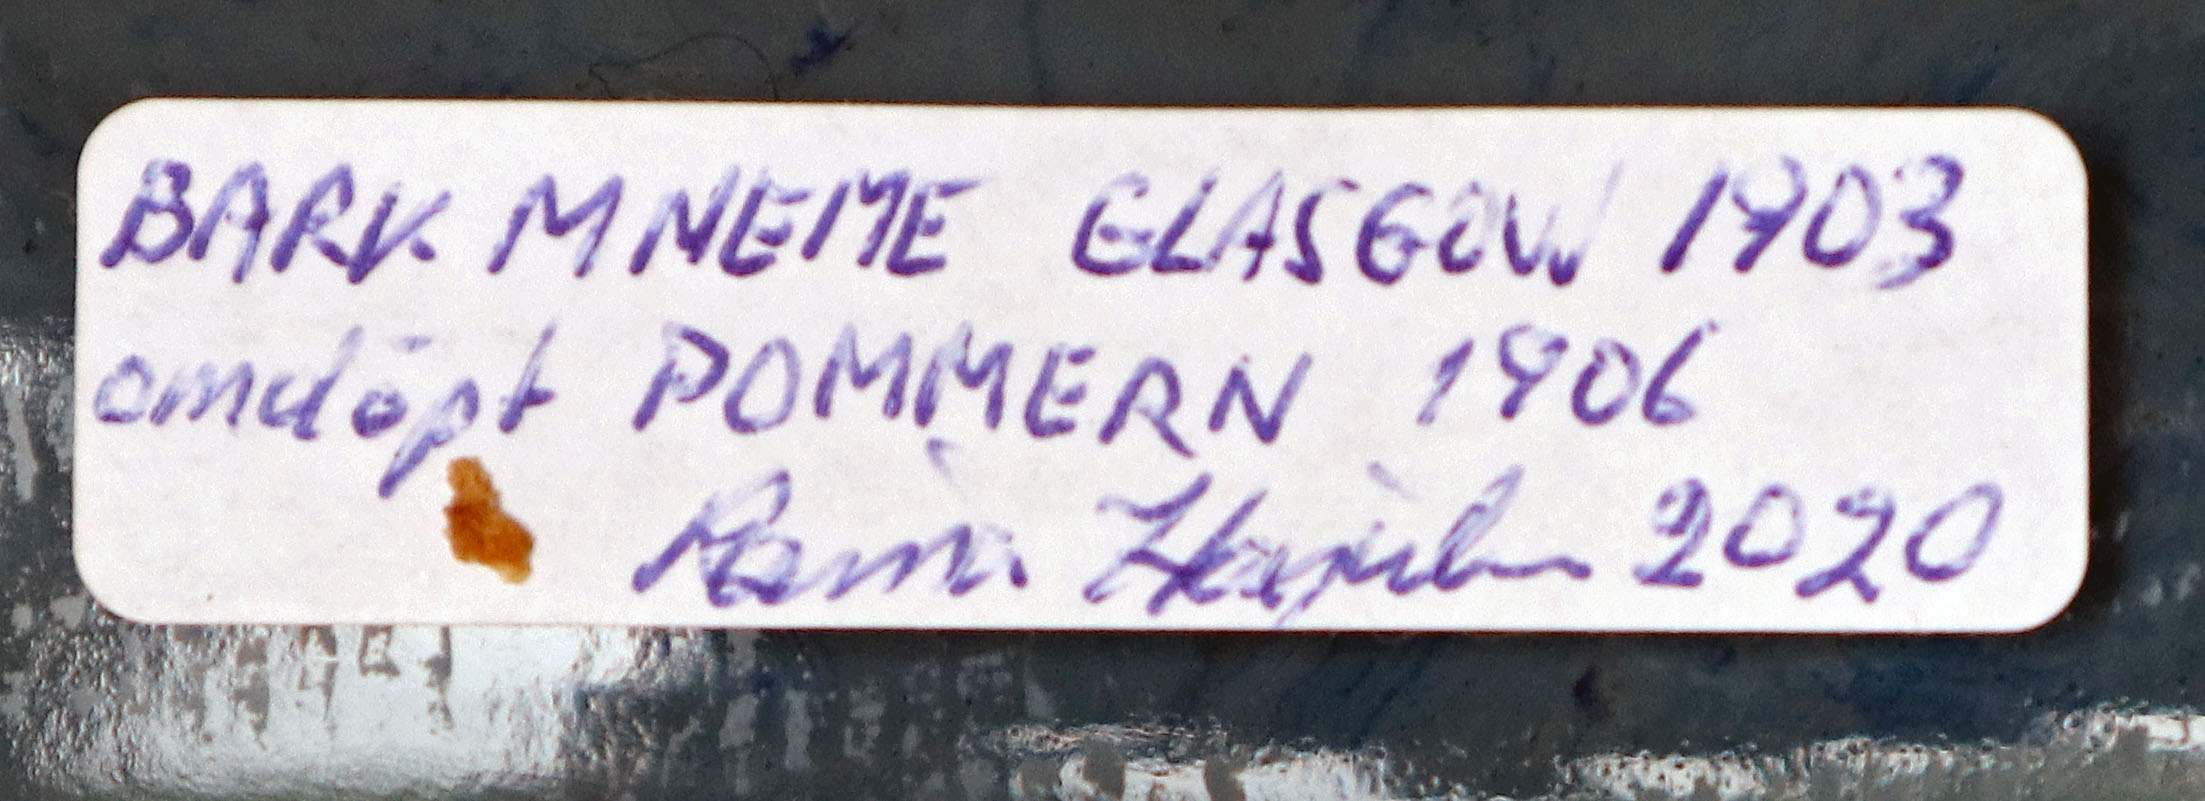 BARK MNEME GLASGOW 1903
omdöpt POMMERN 1906
2020